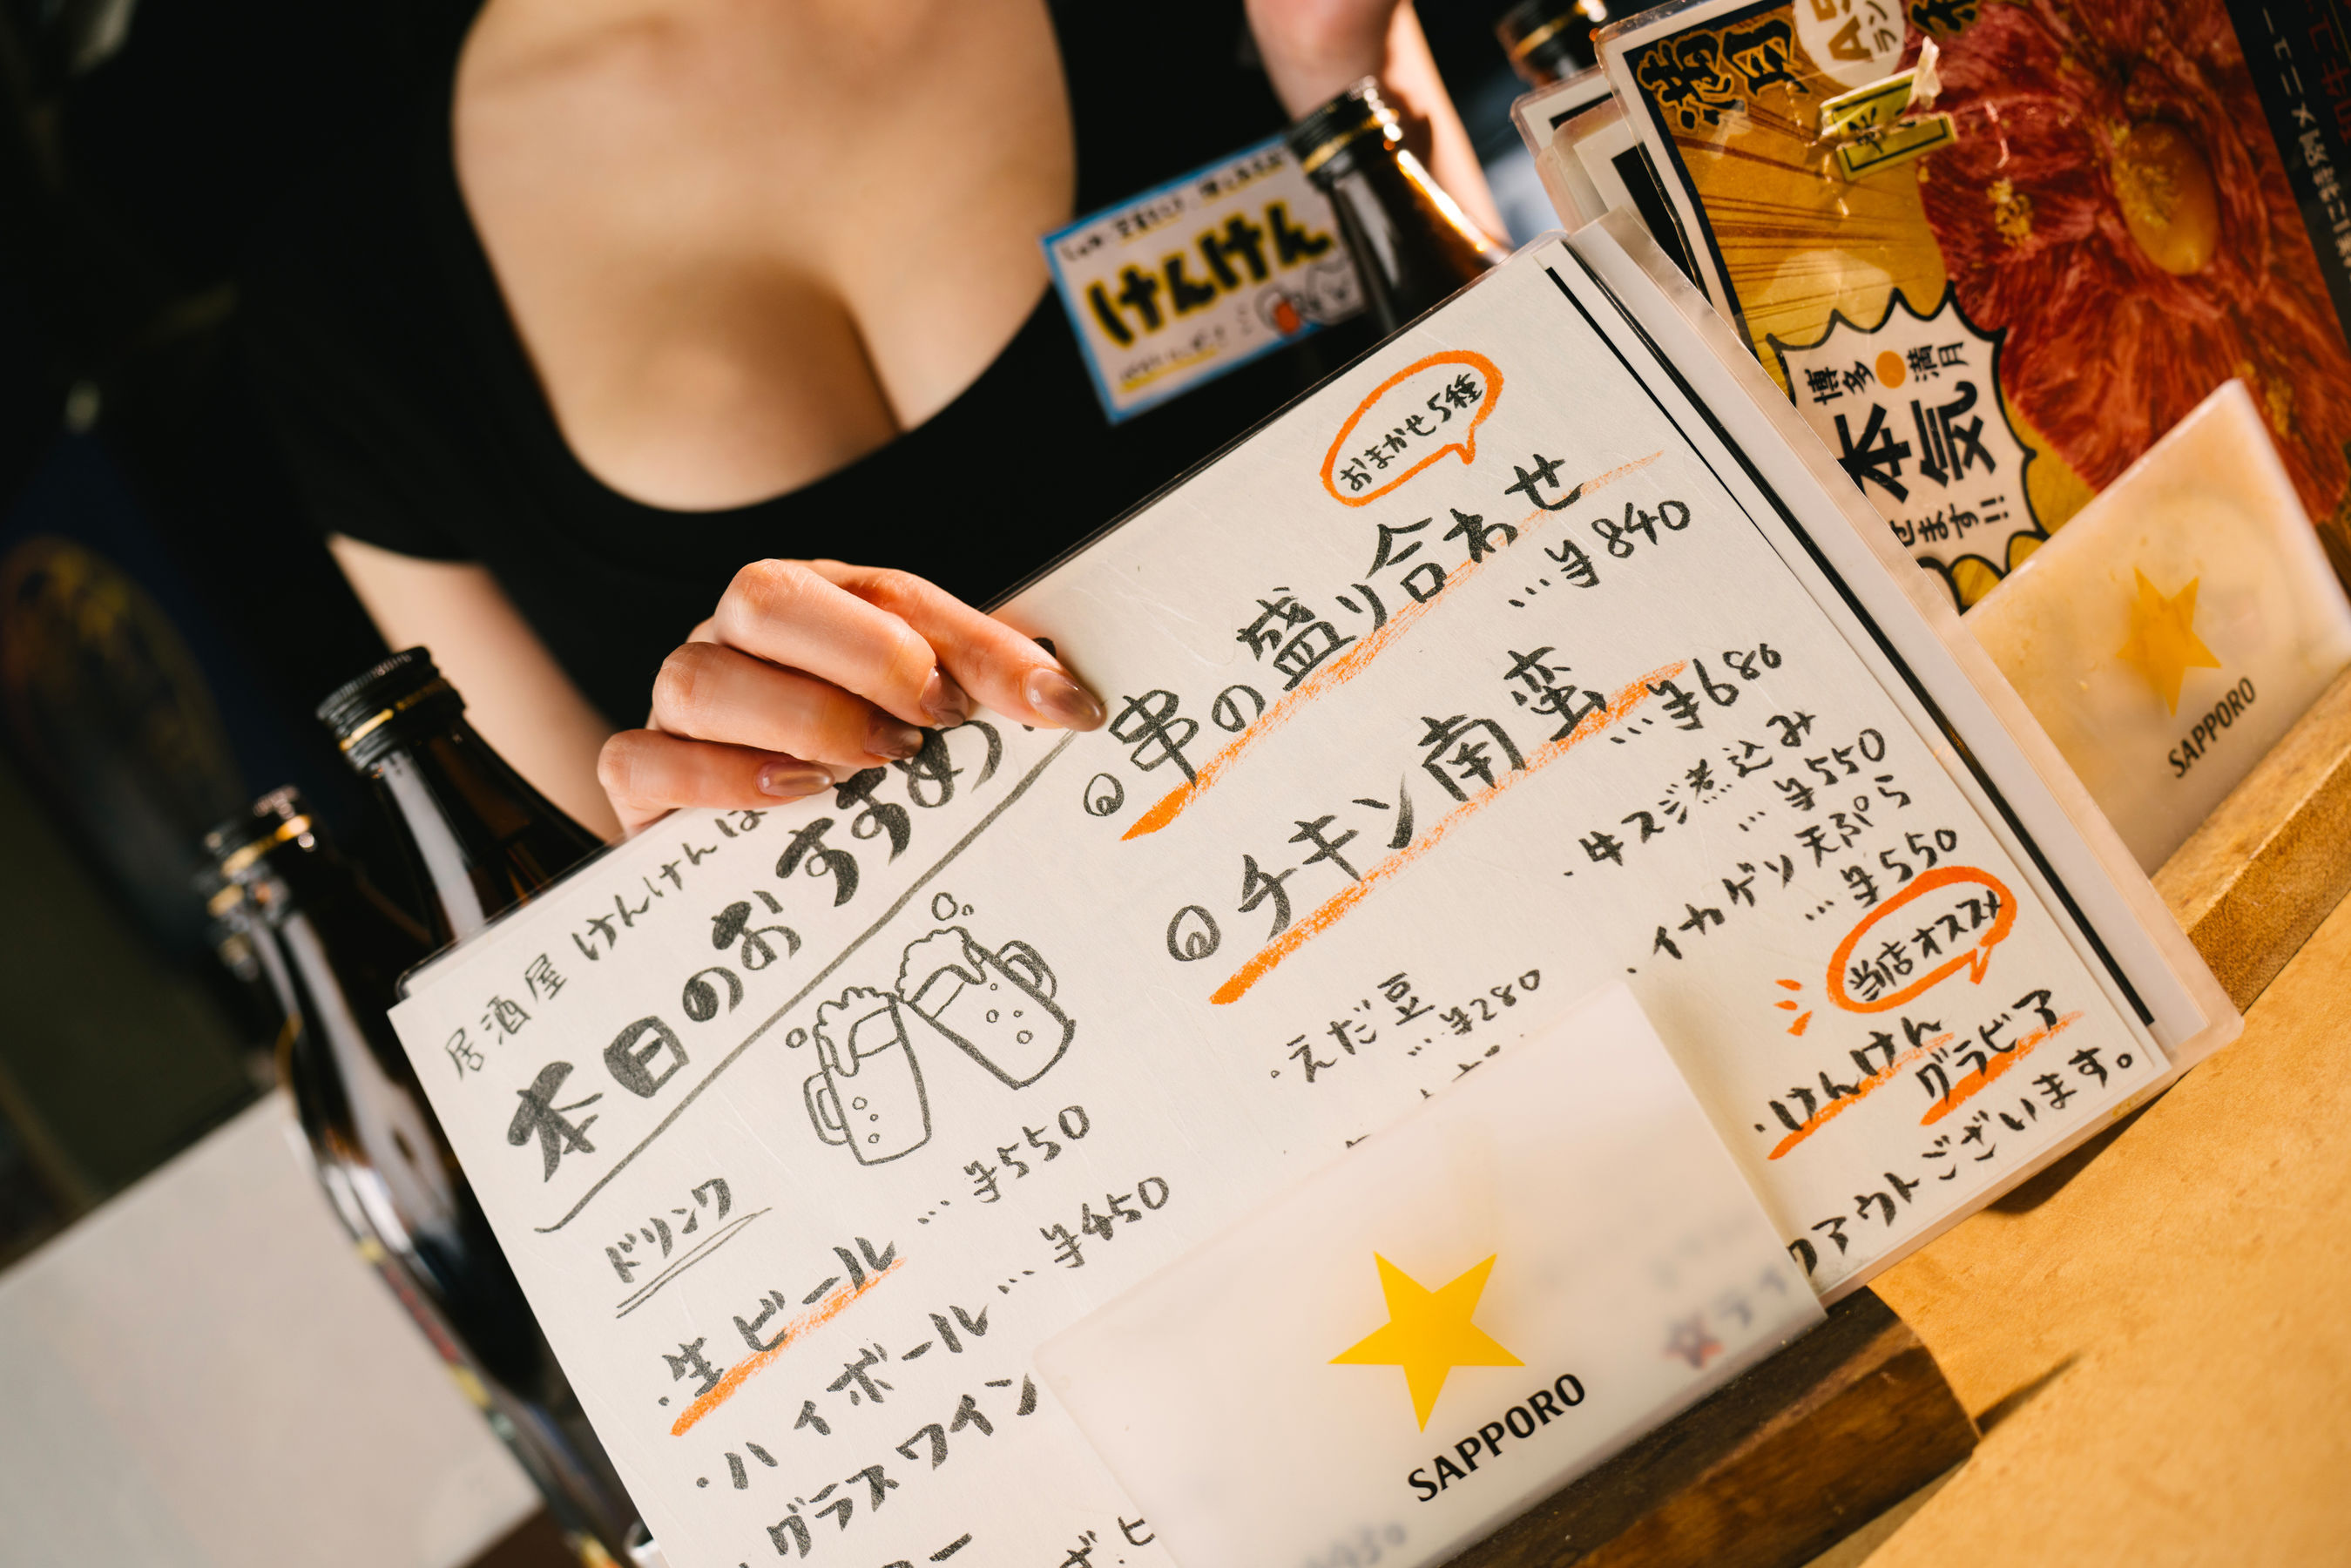 居酒屋けんけんは
本日のおすすめ
ドリンク
・生ビール … ¥550
・ハイボール … ¥450
・グラスワイン
おまかせ5種
◎串の盛り合わせ
… ¥840
◎チキン南蛮 … ¥680
・えだ豆
… ¥280
・牛スジ煮込み
… ¥550
・イカゲソ天ぷら
… ¥550
当店オススメ
・けんけん
グラビア
アウトございます。
SAPPORO
けんけん
博多 満月
本気
せます!!
SAPPORO